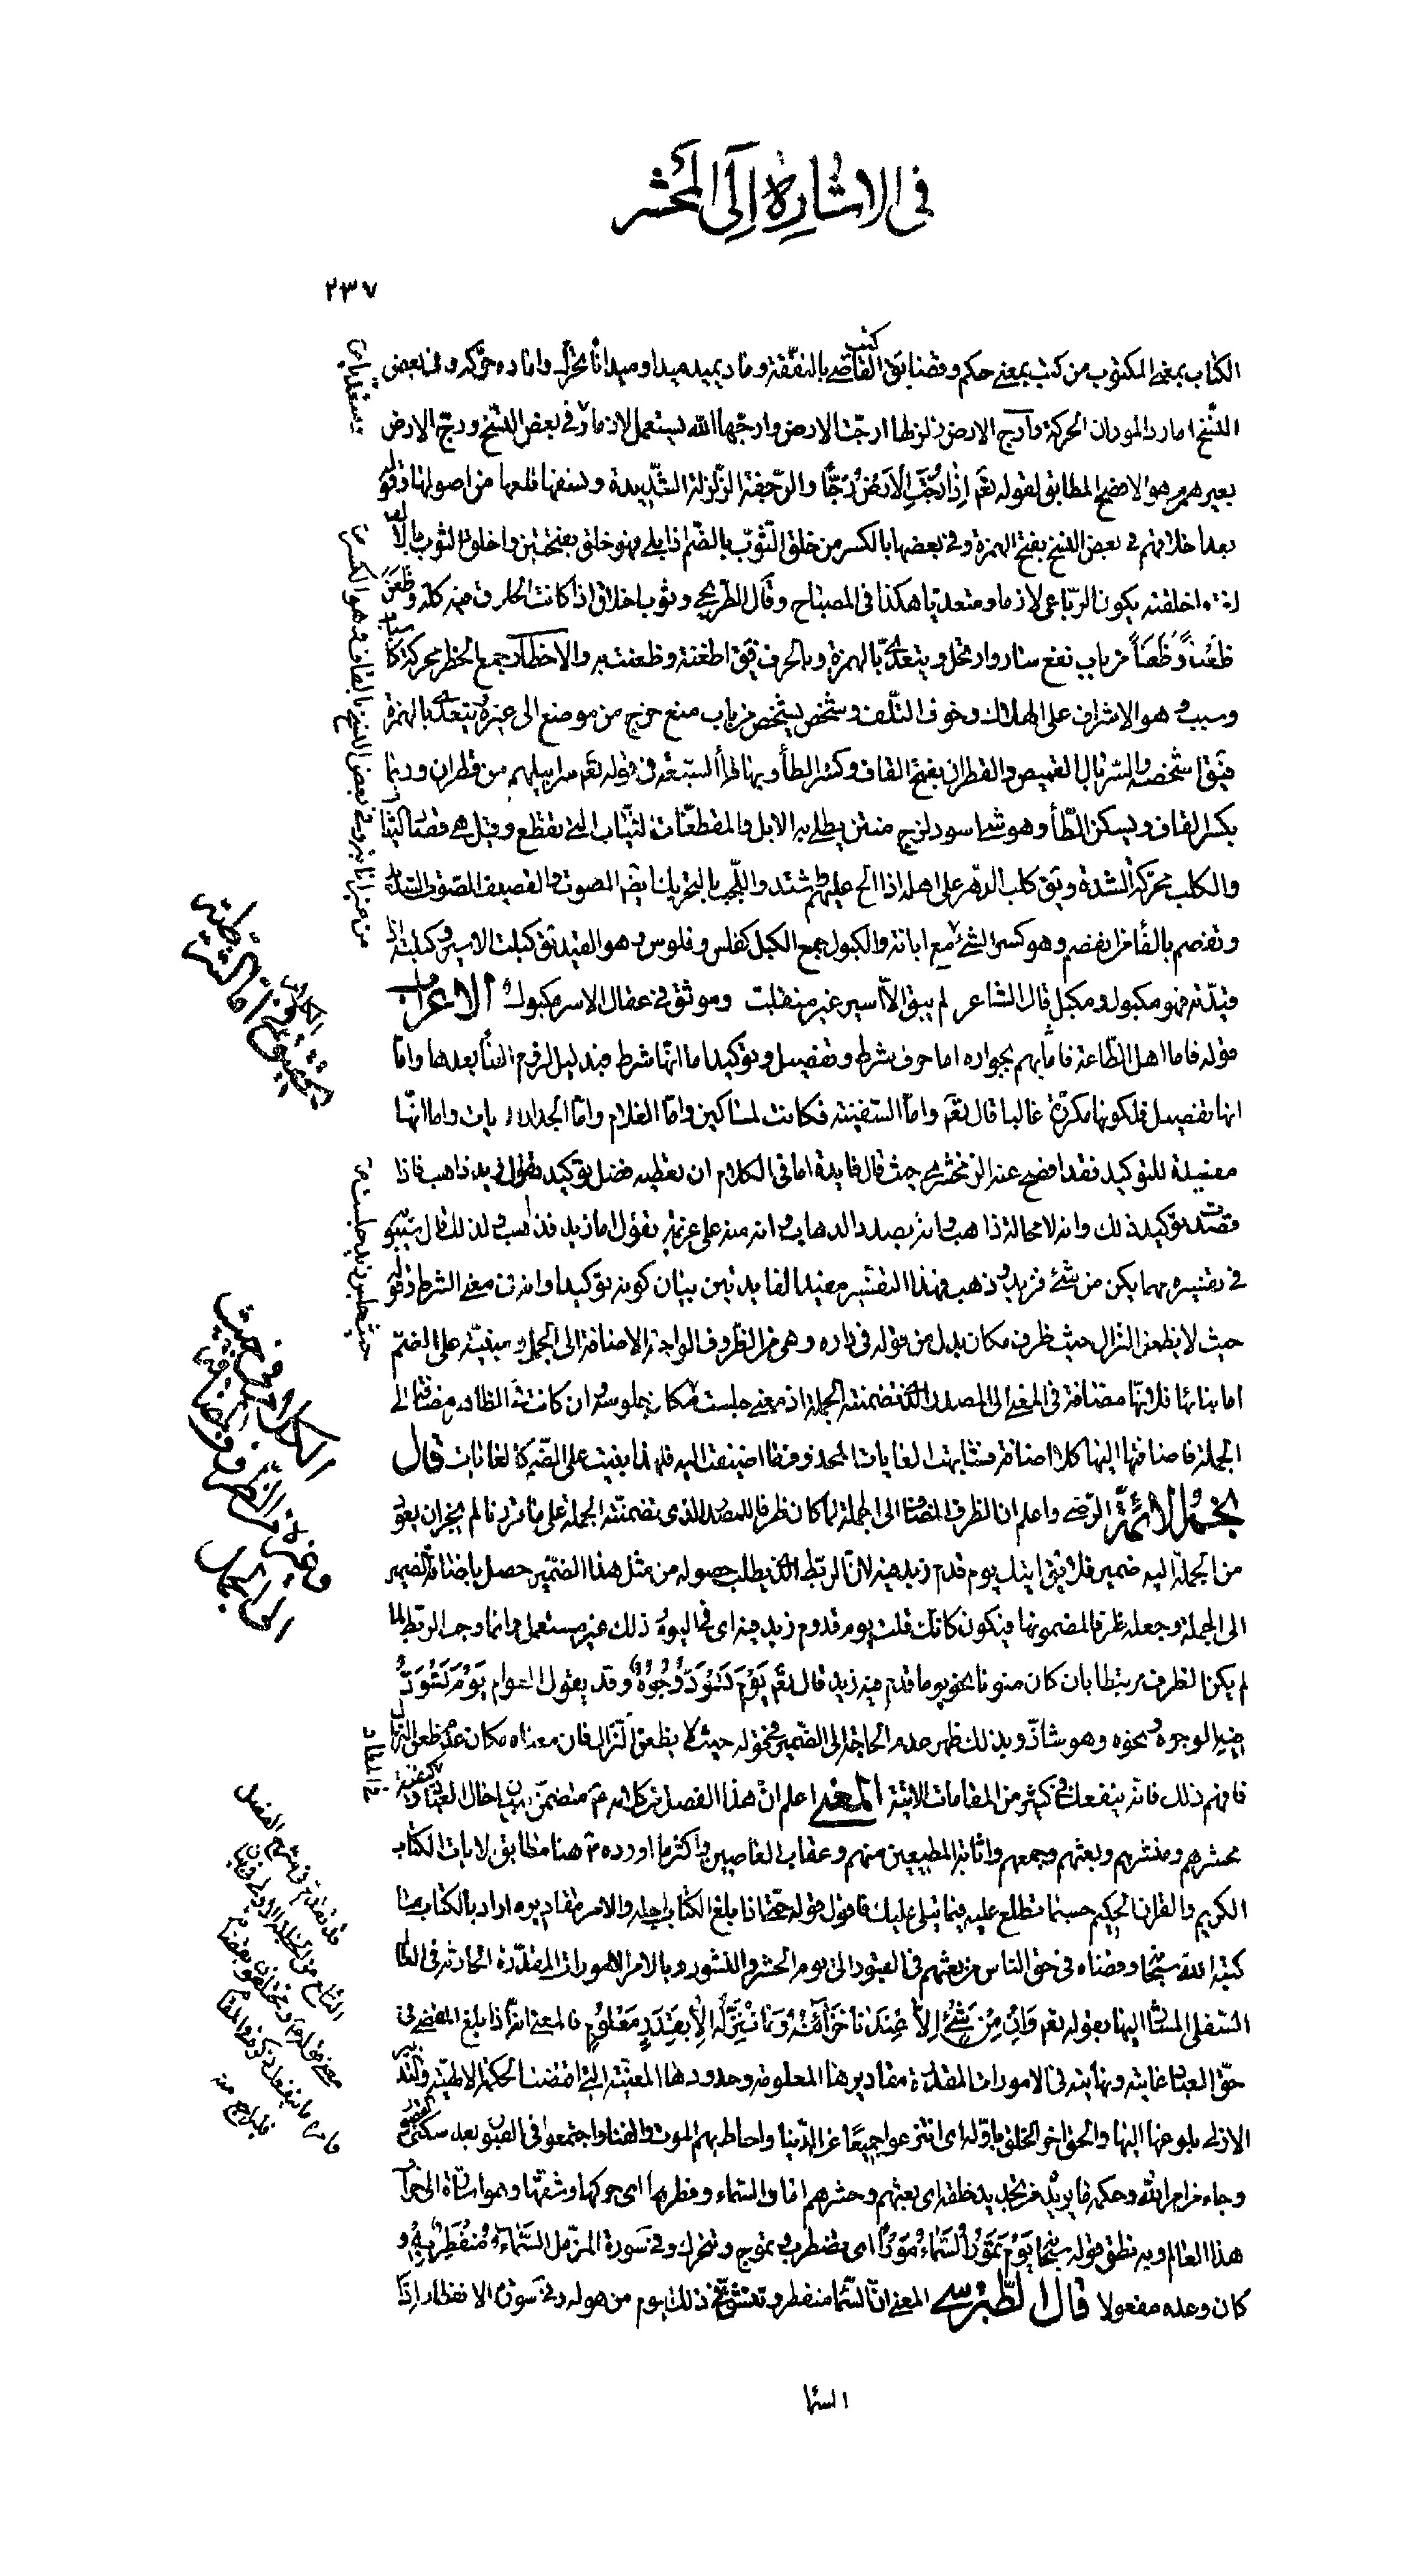 في الاشارة الى المحشر
٢٣٧
الكتاب بمعنى المكتوب من كتب بمعنى حكم وقضا يق كتب القاضي بالنفقة وماد يميد ميدا وميدانا تحرك واماده حركه وفى بعض
النسخ امار والموران الحركة وارج الارض زلزلها ارجت الارض وارجها الله يستعمل لازما و في بعض النسخ ورج الارض
بغير همز وهو الافصح المطابق لقوله تعم اذا رجت الارض رجا والرجفة الزلزلة الشديدة ونسفها قلعها من اصولها وقوله
بعد اخلاقهم في بعض النسخ بفتح الهمزة وفي بعضها بالكسر من خلق الثوب بالضم اذا بلى فهو خلق بفتحتين واخلق الثوب بالالف
لغة واخلقته يكون الرباعى لازما ومتعديا هكذا فى المصباح وقال الطريحي وثوب اخلاق اذا كانت الخلوقة فيه كله وظعن
ظعنا وظعنا من باب نفع سار وارتحل ويتعدى بالهمزة وبالحرف فيق اظعنته وظعنت به والاخطار جمع الخطر محركة كاسباب
وسبب وهو الاشراف على الهلاك وخوف التلف وشخص يشخص من باب منع خرج من موضع الى غيره ويتعدى بالهمزة
فيق اشخصته والسربال القميص والقطران بفتح القاف وكسر الطاء وبها قرأ السبعة فى قوله تعم سرابيلهم من قطران وربما
بكسر القاف ويسكن الطاء وهو شيء اسود لزج منتن يطلى به الابل والمقطعات الثياب التي تقطع وقيل هي قصار الثياب
والكلب محركة الشدة ويق كلب الدهر على اهله اذا الح عليهم واشتد واللجب بالتحريك ايضم الصوت والقصيف الصوت الشديد
وتفصم بالفاء من انفصم وهو كسر الشيء مع ابانة والكبول جمع الكبل كفلس وفلوس وهو القيد يق كبلت الاسير وكبلته اذا
قيدته فهو مكبول ومكبل قال الشاعر لم يبق الا اسير غير منفلت وموثق في عقال الاسر مكبول الاعراب
قوله فاما اهل الطاعة فاثابهم بجواره اما حرف شرط وتفصيل وتوكيد اما انها شرط فبدليل لزوم الفاء بعدها واما
انها تفصيل فلكونها مكررة غالبا قال تعم واما السفينة فكانت لمساكين واما الغلام واما الجدار الايات واما انها
مفيدة للتوكيد فقد افصح عنه الزمخشري حيث قال فايدة اما فى الكلام ان تعطيه فضل توكيد تقول زيد ذاهب فاذا
قصدت توكيد ذلك وانه لا محالة ذاهب وانه بصدد الذهاب وانه منه على عزيمة تقول اما زيد فذاهب ولذلك قال سيبويه
في تفسيره مهما يكن من شيء فزيد ذاهب فهذا التفسير مفيد الفايدتين بيان كونه توكيدا وانه في معنى الشرط وقوله
حيث لا يظعن النزال حيث ظرف مكان بدل من قوله في داره وهي من الظروف الواجبة الاضافة الى الجمل ومبنية على الضم
اما بنائها فلانها مضافة فى المعنى الى المصدر الذي تضمنته الجملة اذ معنى جلست مكان جلوسه وان كانت في الظاهر مضافة الى
الجملة فاضافتها اليها كلا اضافة فشابهت الغايات المحذوفة ما اضيفت اليه فلهذا بنيت على الضم كالغايات قال
نجم الائمة الرضي واعلم ان الظرف المضاف الى الجملة لما كان ظرفا للمصدر الذى تضمنته الجملة على ما قررنا لم يجز ان يعود
من الجملة اليه ضمير فلا يق اتيتك يوم قدم زيد فيه لان الربط الذي يطلب حصوله من مثل هذا الضمير حصل باضافة الضمير
الى الجملة وجعله ظرفا لمضمونها فيكون كانك قلت يوم قدوم زيد فيه اى في اليوم وذلك غير مستعمل وانما وجب الربط لما
لم يكن الظرف مرتبطا بان كان منونا نحو يوما قدم فيه زيد قال تعم يوم تسود وجوه وقد يقول العوام يوم تسود
فيه الوجوه ونحوه وهو شاذ وبذلك ظهر عدم الحاجة الى الضمير في قوله حيث لا يظعن النزال فان معناه مكان عدم ظعن النزال
فافهم ذلك فانه ينفعك في كثير من المقامات الاتية المعنى اعلم ان هذا الفصل من كلامه ع متضمن لبيان حال العباد وكيفية
محشرهم ومنشرهم وبعثهم وجمعهم واثابة المطيعين منهم وعقاب العاصيين واكثر ما اورده ع هنا مطابق لايات الكتاب
الكريم والقران الحكيم حسبما تطلع عليه فيما يتلى عليك فاقول قوله حتى اذا بلغ الكتاب اجله والامر مقاديره اراد بالكتاب ما
كتبه الله سبحانه وقضاه فى حق الناس من بعثهم فى القبور الى يوم الحشر والنشور وبالامر الامورات المقدرة الحادثة فى العالم
السفلى المشار اليها بقوله تعم وان من شيء الا عندنا خزائنه وما ننزله الا بقدر معلوم فالمعنى انه اذا بلغ المقضي في
حق العباد غايته ونهايته فى الامورات المقدرة مقاديرها المعلومة وحدودها المعينة التي اقتضت الحكمة الالهية والتدبير
الازلى بلوغها اليها والحق اخر الخلق باوله اى انتزعوا جميعا عن الدنيا واحاط بهم الموت والفناء واجتمعوا فى القبور بعد سكنى القصور
وجاء من امر الله وحكمه ما يريده من تجديد خلقه اى بعثهم وحشرهم اماد السماء وفطرها اى حركها وشقها وهو اشارة الى خراب
هذا العالم وبه نطق قوله سبحانه يوم تمور السماء مورا اى تضطرب وتموج وتتحرك وفى سورة المزمل السماء منفطر به و
كان وعده مفعولا قال الطبرسي المعنى ان السماء منفطر وتنشق في ذلك اليوم من هوله وفى سورة الانفطار اذا
السماء
يستعمل
من غير اثابة وفي بعض النسخ بالقاف وهو الكسر
تحقيق في اما الشرطية
حيث جلس زيد جلست
الكلام في حيث
وغيره من الظروف المضافة
الى الجمل
في المفاد